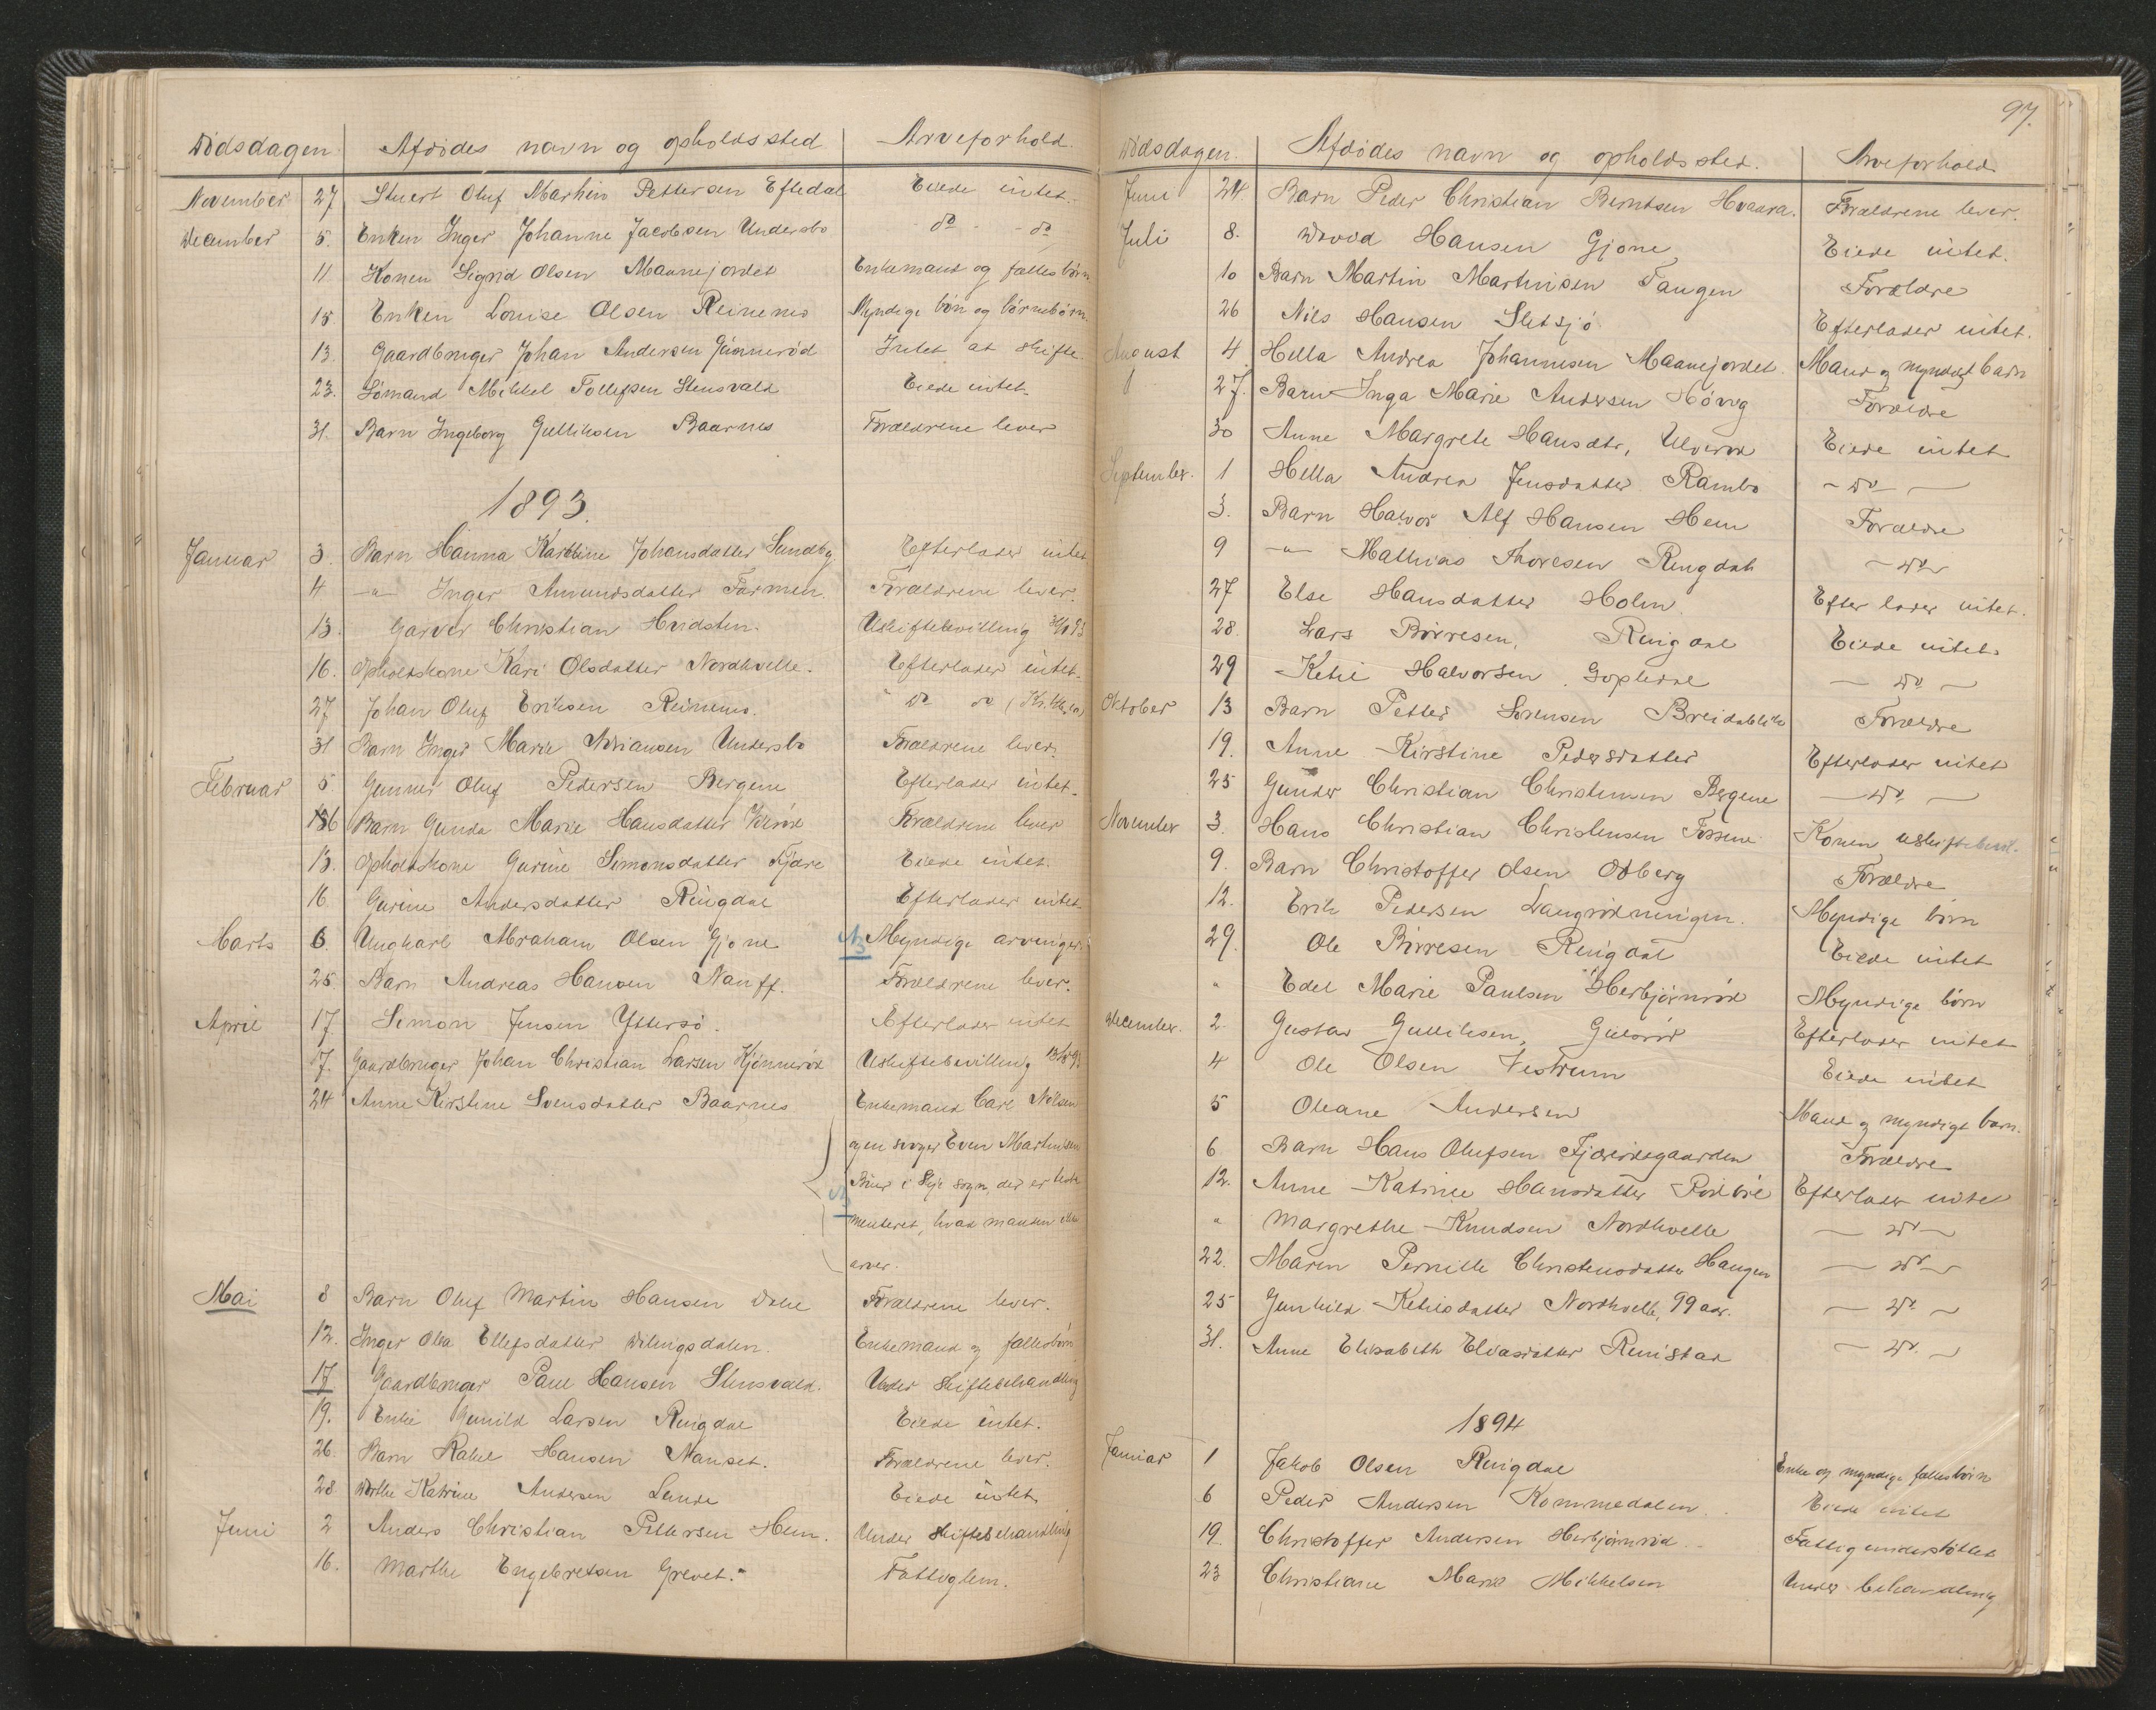 Dödsdagen. Afdödes navn og opholdssted Arveforhold.
November 27 Oluf Marhin Pettersen Eftedal Eiede intet.
December 5. Enken Inger Johanne Jacobsen Undersbo do - do
11 Konen Sigrid Olsen Maanejordet Enkemand og fælles börn
15 Enken Louise Olsen Reinenes Myndige börn og börnebörn.
13. Gaardbruger Johan Andersen Gjönneröd Intet at skifte.
23. Sömand Mikkel Tollefsen Stensvald Eiede intet.
31. Barn Ingeborg Gulliksen Baarnes Forældrene lever
1893.
Januar 3. Barn Hanna Karoline Johansdatter Sundby Efterlader intet
4 -"- Inger Amundsdatter Farmen. Forældrene lever.
13. Garver Christian Hvidsten. Uskiftebevilling
16. Opholdskone Kari Olsdatter Nordhvelle. Efterlader intet.
27 Johan Oluf Eriksen Reinenes. do do
31 Barn Inger Marie Adriansen Undersbo Forældrene lever.
Februar 5 Gunner Oluf Pedersen Bergene Efterlader intet.
6 Barn Gunda Marie Hansdatter Forældrene lever
13. Opholdskone Gurine Simonsdatter Fjære Eiede intet.
16 Gurine Andersdatter Ringdal Efterlader intet
Marts 6. Ungkarl Abraham Olsen Gjone Myndige arvinger.
25. Barn Andreas Hansen Nauff. Forældrene lever.
April 17 Simon Jensen Yttersö. Efterlader intet
17. Gaardbruger Johan Christian Larsen Kjönneröd Uskiftebevilling
24 Anne Kirstine Svensdatter Baarnes Enkemand Carl Nilsen
og en svoger Even Martinsen
i sogn, der er testa
menteret, hvad manden ikke
arver.
Mai 8 Barn Oluf Martin Hansen Dale Forældrene lever.
12. Inger Olea Ellefsdatter Dilingsdalen. Enkemand og fællesbörn
17 Gaardbruger Paul Hansen Stensvald. Under skiftebehandling
19. Enke Gunild Larsen Ringdal Eiede intet.
26. Barn Rakel Hansen Nanset. Forældrene lever.
28. Dorthe Katrine Andersen Lande Eiede intet
Juni 2 Anders Christian Pettersen Hem. Under skiftebehandling
16. Marthe Engebretsen Grevet. Fattiglem.
97.
Dödsdagen. Afdödes navn og opholdssted. Arveforhold
Juni 24. Barn Peder Christian Berntsen Hvaara. Forældrene lever.
Juli 8. David Hansen Gjone Eiede intet.
10 Barn Martin Martinisen Tangen Forældre
26 Nils Hansen Sletsjö Efterlader intet.
August 4. Hella Andrea Johannesen Maanejordet. Mand og myndigt barn
27. Barn Inga Marie Andersen Höveg Forældre
30 Anne Margrete Hansdtr, Ulveröd Eiede intet
September. 1 Hella Andrea Jensdatter Rambo - do -
3. Barn Halvor Alf Hansen Hem Forældre
9 -"- Mathias Thoresen Ringdal - do -
27 Else Hansdatter Holm. Efterlader intet.
28. Lars Börresen, Ringdal Eiede intet.
29 Ketil Halvorsen Gopledal - do -
Oktober 13 Barn Petter Sörensen Breidablik Forældre
19. Anne Kirstine Pedersdatter Efterlader intet
25 Gunder Christian Christensen Bergene - do -
November 3. Hans Christian Christensen Fossene. Konen uskiftebevil.
9. Barn Christoffer Olsen Odberg Forældre
12. Erik Pedersen Langrödningen. Myndige börn
29. Ole Börresen Ringdal Eiede intet
" Edel Marie Paulsen Herbjörnröd Myndige börn
December. 2. Gustav Gulliksen, Eftelader intet
4 Ole Olsen Vestrum Eiede intet
5 Oleane Andersen Mand og myndigt barn.
6 Barn Hans Olufsen Fjæreidegaarden Forældre
12. Anne Katrine Hansdatter Efterlader intet
" Margrethe Knudsen Nordhvelle - do -
22. Maren Pernille Christensdatter Haugen - do -
25 Gunhild Ketilsdatter Nordhvelle, 99 aar. - do -
31. Anne Elisabeth Eliasdatter - do -
1894
Januar 1 Jakob Olsen Ringdal Enke og myndige fællesbörn
6 Peder Andersen Kommedalen. Eiede intet
19. Christoffer Andersen Herbjörnröd Fattigunderstöttet
23 Christiane Marie Mikkelsen Under behandling